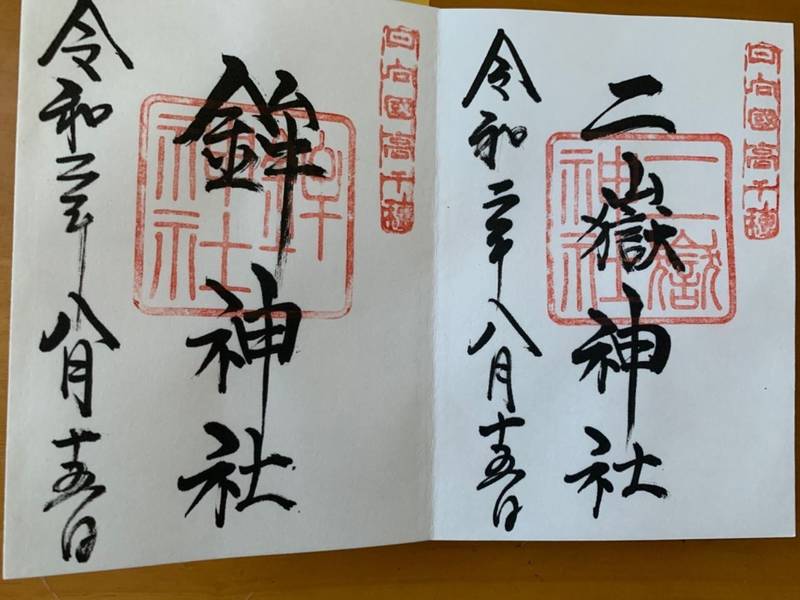 日向國高千穂
二嶽神社
二嶽神社
令和二年八月十五日
日向國高千穂
鉾神社
鉾神社
令和二年八月十五日